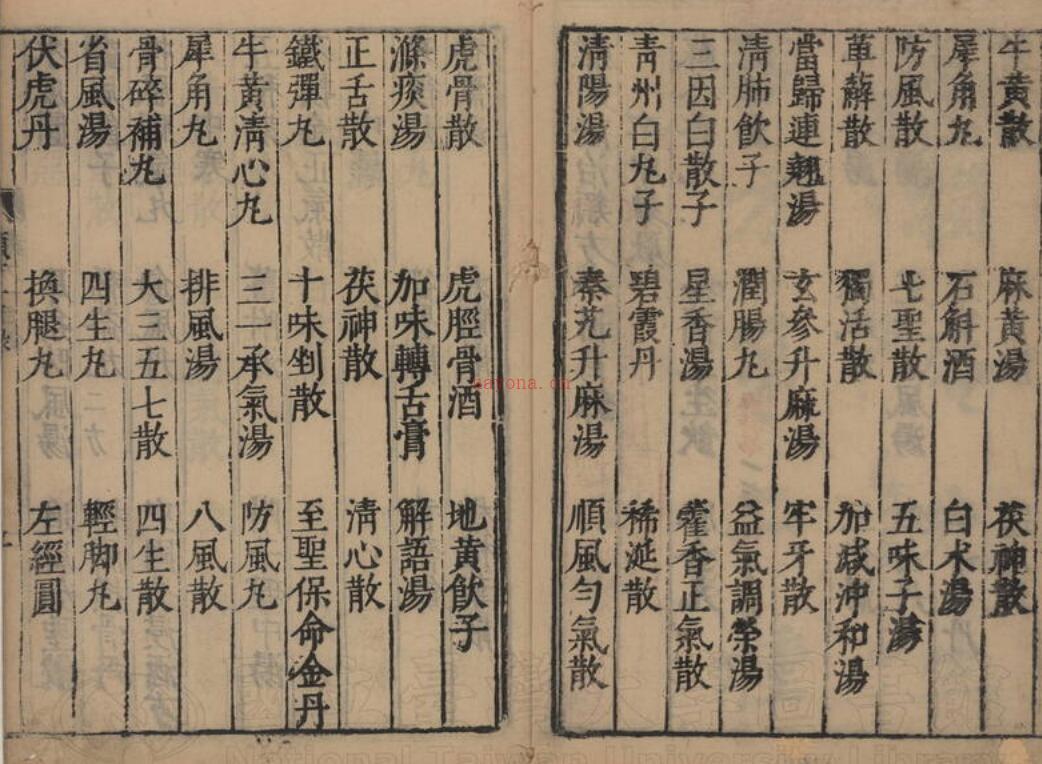 牛黄散 麻黄湯 茯神散
犀角丸 石斛酒 白术湯
防風散 七聖散 五味子湯
萆薢散 獨活散 加减沖和湯
當歸連翹湯 玄參升麻湯 牢牙散
清肺飲子 潤腸丸 益氣調榮湯
三因白散子 星香湯 藿香正氣散
青州白丸子 碧霞丹 稀涎散
清陽湯 秦艽升麻湯 順風勻氣散
虎骨散 虎脛骨酒 地黄飲子
滌痰湯 加味轉舌膏 解語湯
正舌散 茯神散 清心散
鐵彈丸 十味剉散 至聖保命金丹
牛黄清心丸 三一承氣湯 防風丸
犀角丸 排風湯 八風散
骨碎補丸 大三五七散 四生散
省風湯 四生丸 輕脚丸
伏虎丹 換腿丸 左經圓
sayona.cn
National Taiwan University Library